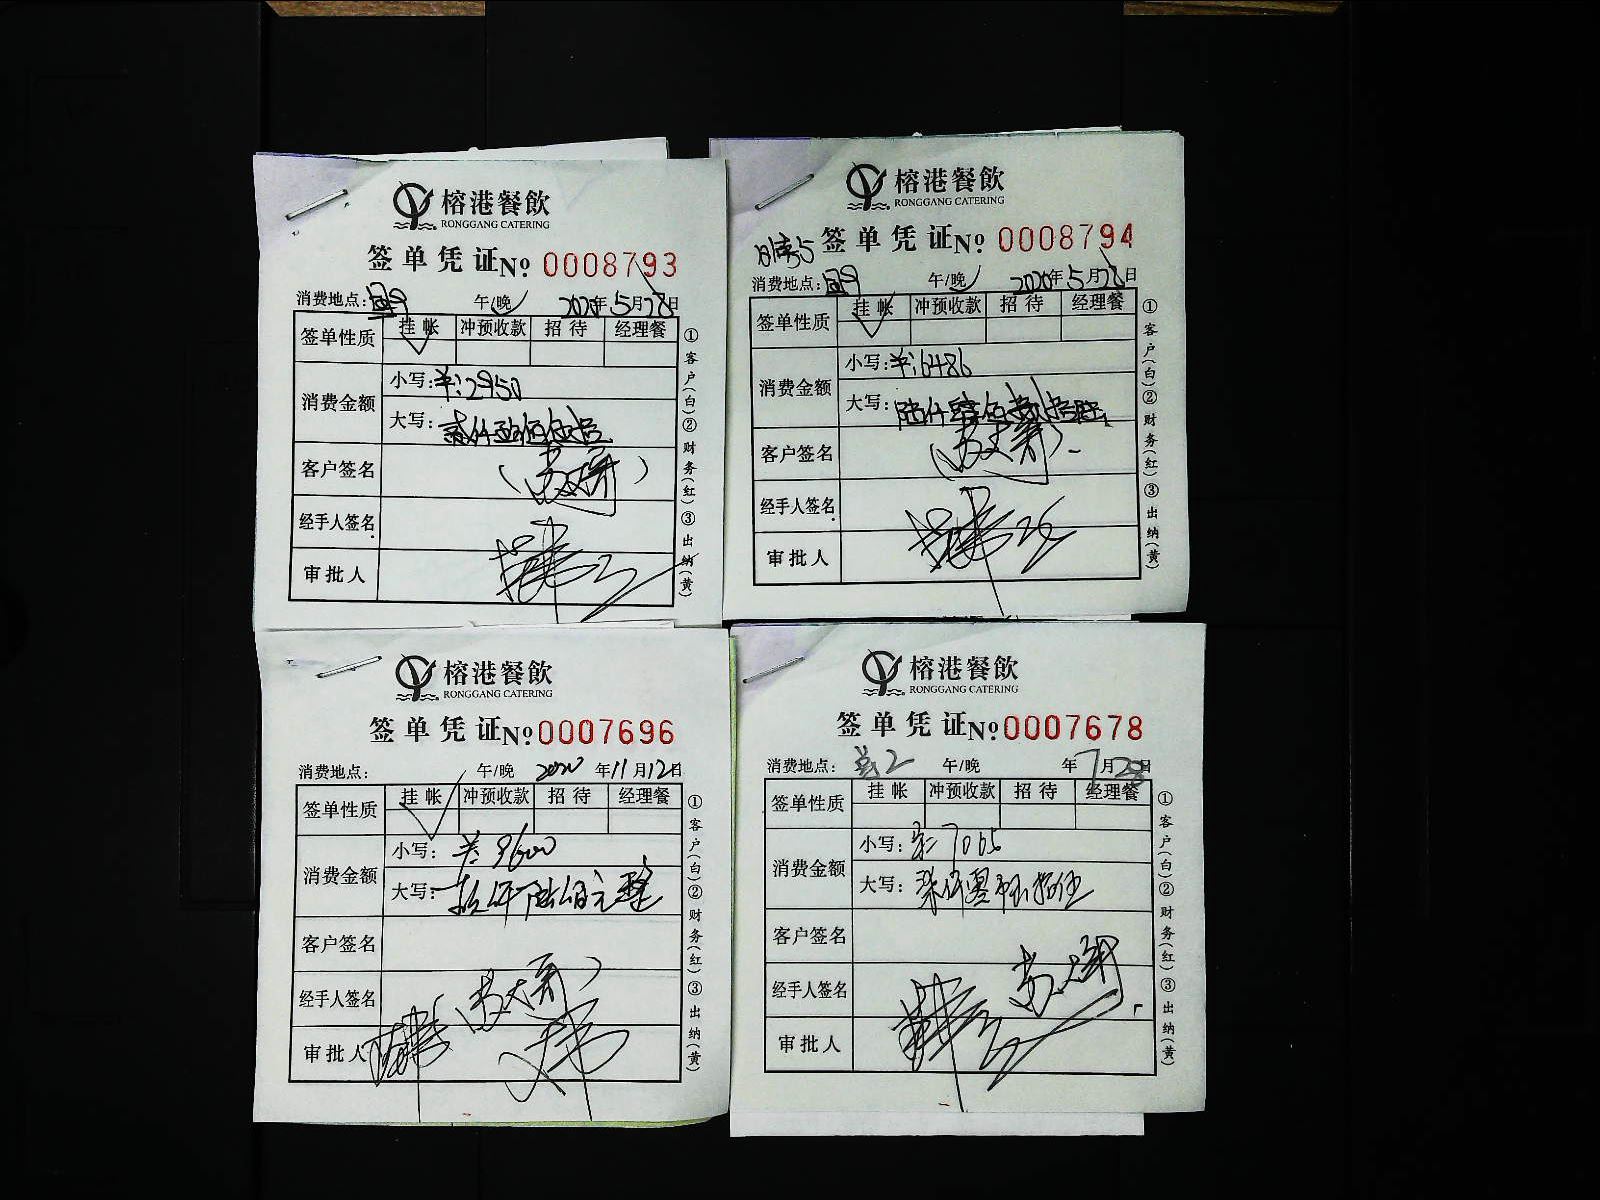 榕港餐飲
RONGGANG CATERING
签单凭证№ 0008793
消费地点: 午/晚 2020年5月28日
签单性质 挂帐 冲预收款 招待 经理餐
消费金额
小写:¥:2950
大写:贰仟玖佰伍拾
客户签名
经手人签名
审批人
①客户(白)②财务(红)③出纳(黄)
榕港餐飲
RONGGANG CATERING
签单凭证№ 0008794
消费地点: 午/晚 2020年5月28日
签单性质 挂帐 冲预收款 招待 经理餐
消费金额
小写:¥:6486
大写:陆仟肆佰捌拾陆
客户签名
经手人签名
审批人
①客户(白)②财务(红)③出纳(黄)
榕港餐飲
RONGGANG CATERING
签单凭证№ 0007696
消费地点: 午/晚 2020年11月12日
签单性质 挂帐 冲预收款 招待 经理餐
消费金额
小写: 9600
大写: 仟陆佰元整
客户签名
经手人签名
审批人
①客户(白)②财务(红)③出纳(黄)
榕港餐飲
RONGGANG CATERING
签单凭证№ 0007678
消费地点: 午/晚 年7月28日
签单性质 挂帐 冲预收款 招待 经理餐
消费金额
小写: 7065
大写:柒仟零陆拾伍
客户签名
经手人签名
审批人
①客户(白)②财务(红)③出纳(黄)